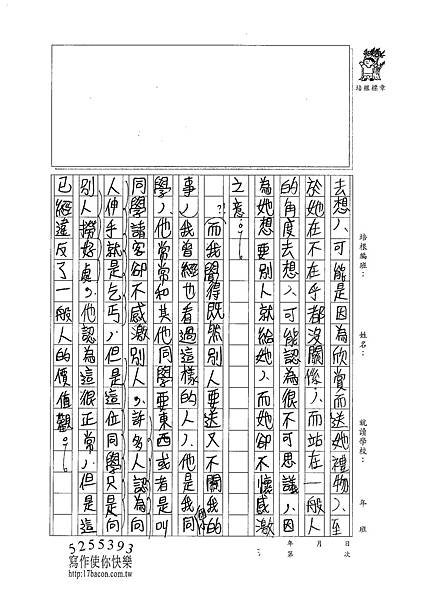 培根標章
培根編班：
姓名：
就讀學校：
年 班
月 日
第 次
去想，可能是因為欣賞而送她禮物，至
於她在不在乎都沒關係，而站在一般人
的角度去想，可能認為很不可思議，因
為她想要別人就給她，而她卻不懷感激
之意。
而我覺得既然別人要送又不關我的
事，我曾經也看過這樣的人，他是我同
學，他常常和其他同學要東西或者是叫
同學請客卻不感激別人，許多人認為向
人伸手就是乞丐，但是這位同學只是向
別人撈好處，他認為這很正常，但是這
已經違反了一般人的價值觀。
5255393
寫作使你快樂
http://17bacon.com.tw